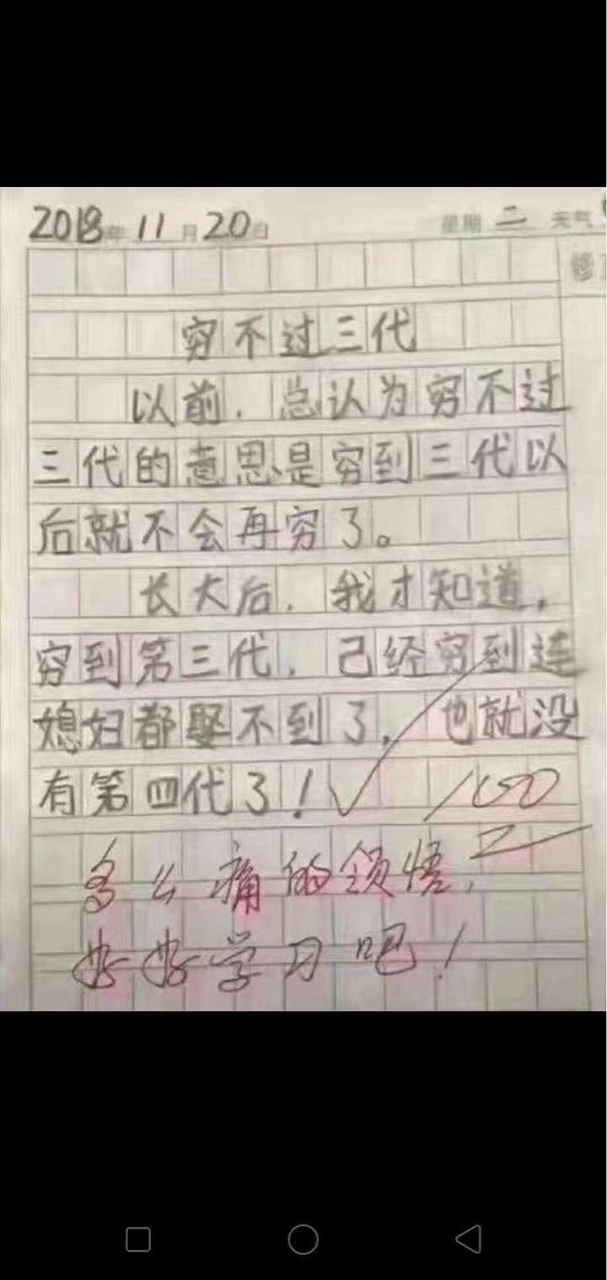 2018年11月20日 星期二 天气
修
穷不过三代
以前，总认为穷不过
三代的意思是穷到三代以
后就不会再穷了。
长大后，我才知道，
穷到第三代，己经穷到连
媳妇都娶不到了，也就没
有第四代了！
100
多么痛的领悟，
好好学习吧！